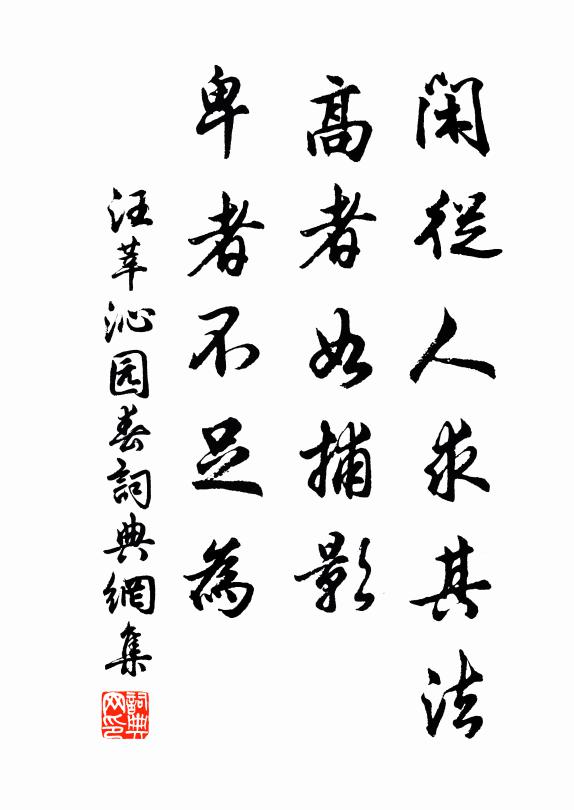 閑從人求其法
高者如捕影
卑者不足為
汪莘沁园春詞典網集
詞典网印